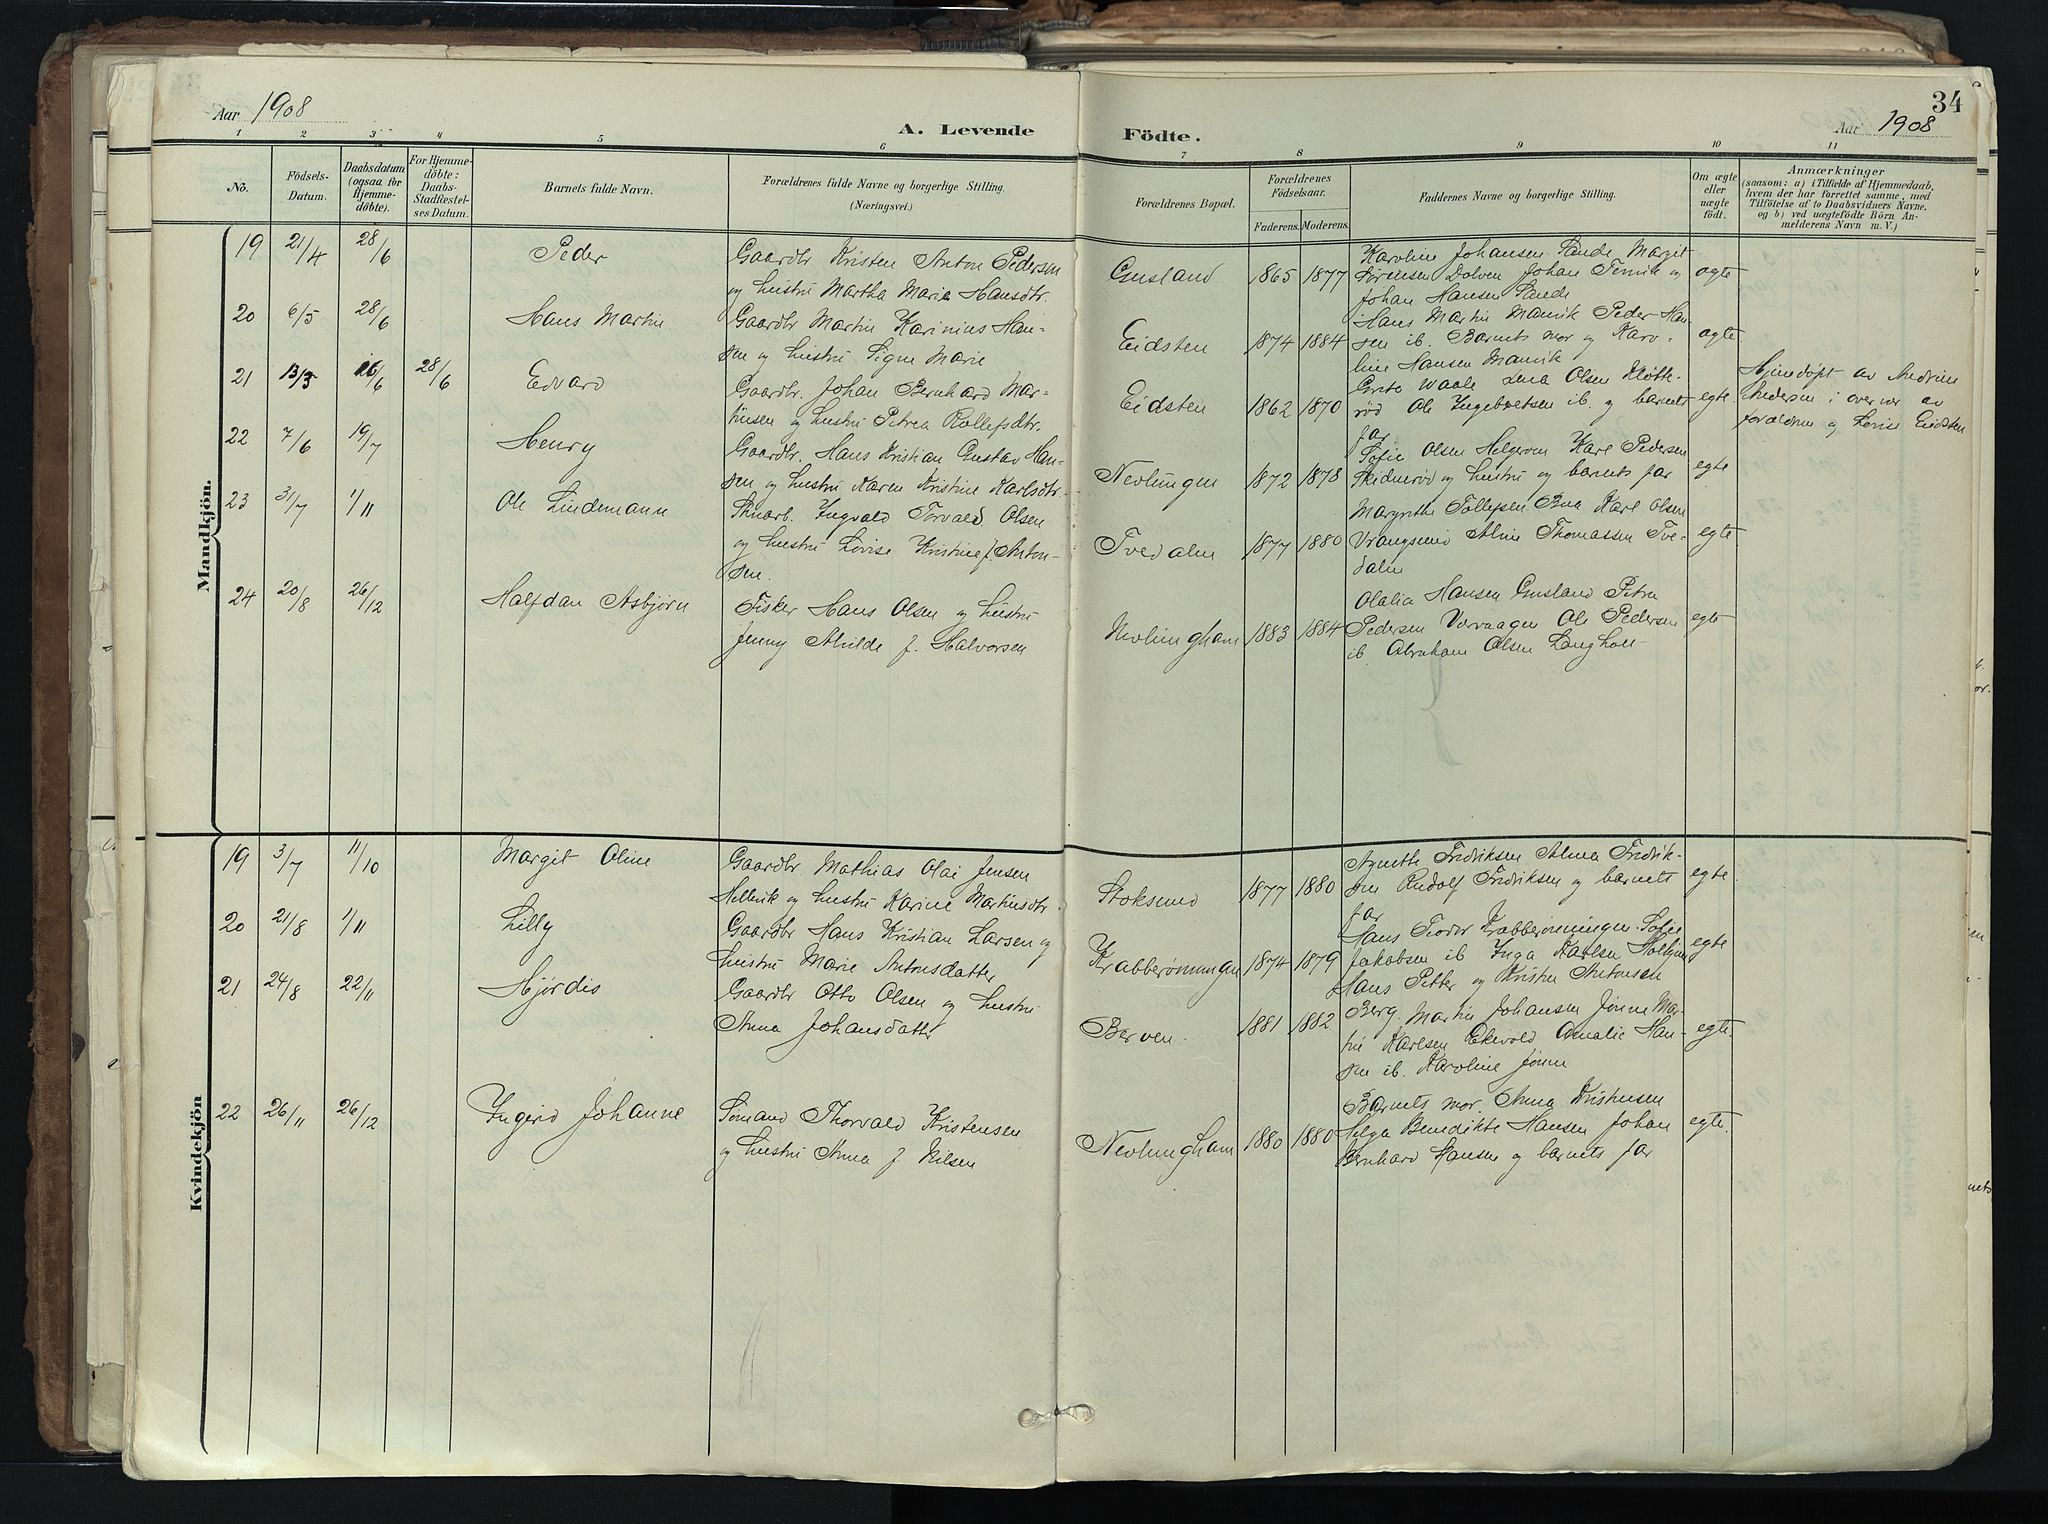 Aar 1908
A. Levende
Födte.
34
Aar 1908
1 2 3 4 5 6 7 8 9 10 11
No.
Födsels-
Datum.
Daabsdatum
(ogsaa for
Hjemme-
döbte).
For Hjemme-
döbte:
Daabs-
Stadfæstel-
ses Datum.
Barnets fulde Navn.
Forældrenes fulde Navne og borgerlige Stilling.
(Næringsvei.)
Forældrenes Bopæl.
Forældrenes
Födselsaar.
Faderens. Moderens.
Faddernes Navne og borgerlige Stilling.
Om ægte
eller
uægte
födt.
Anmærkninger
(saasom: a) i Tilfælde af Hjemmedaab,
hvem der har forrettet samme, med
Tilföielse af to Daabsvidners Navne.
og b) ved uegtefödte Börn An-
melderens Navn m. V.)
Mandkjön.
19 21/4 28/6 Peder
Gaardbr Kristen Anton Pedersen
og hustru Martha Marie Hansdtr.
Gusland 1865 1877
Karoline Johansen Sande Margit
Sørensen Dolven Johan Temik og
Johan Hansen Sande
ægte
20 6/5 28/6 Hans Martin
Gaardbr Martin Karinius Han-
sen og hustru Signe Marie
Eidsten 1874 1884
Hans Martin Manvik Peder Han-
sen ib. Barnets mor og Karo-
line Hansen Manvik
ægte
21 13/3 16/6 28/6 Edvard
Gaardbr. Johan Bernhard Mar-
tinsen og hustru Petrea Rollefsdtr.
Eidsten 1862 1870
Grete Waale Lena Olsen Kløtte-
rød Ole Ingebretsen ib. og barnets
far
egte
Hjemdøpt av Andrine
Andersen i overvær av
forældrene og Lovise Eidsten
22 7/6 19/7 Henry
Gaardbr. Hans Kristian Gustav Han-
sen og hustru Karen Kristine Karlsdtr.
Nevlungen 1872 1878
Sofie Olsen Helgeroa Karl Pedersen
Skidnerød og hustru og barnets far
egte
23 31/7 1/11 Ole Lindemann
Stenarb. Yngvald Torvald Olsen
og hustru Lovise Kristine f. Anton-
sen.
Tvedalen 1877 1880
Margrethe Tollefsen Bua Karl Olsen
Vrangsund Aline Thomassen Tve-
dalen
egte
24 20/8 26/12 Halfdan Asbjørn
Fisker Hans Olsen og hustru
Jenny Alvilde f. Halvorsen
Nevlungham 1883 1884
Olalia Hansen Gusland Petra
Pedersen Vorvaagen Ole Pedersen
ib. Abraham Olsen Langholt
egte
Kvindekjön
19 3/7 11/10 Margit Oline
Gaardbr Mathias Olai Jensen
Hellevik og hustru Karine Martinsdtr.
Stoksund 1877 1880
Agnethe Fredriksen Alma Fredrik-
sen Rudolf Fredriksen og barnets
far
egte
20 21/8 1/11 Lilly
Gaardbr Hans Kristian Larsen og
hustru Marie Antonsdatter
Krabberønningen 1874 1879
Hans Teodor Krabberønningen Sofie
Jakobsen ib Inga Karlsen
Hans Petter og Kristen Antonsen
egte
21 24/8 22/11 Hjørdis
Gaardbr Otto Olsen og hustru
Anna Johansdatter
Berven. 1881 1882
Berg. Martin Johansen Jønne Mar-
tin Karlsen Ekevold Amalie Han-
sen ib. Karoline Jønne
egte.
22 26/11 26/12 Yngerid Johanne
Sømand Thorvald Kristensen
og hustru Anna f Nilsen
Nevlungham 1880 1880
Barnets mor. Anna Kristensen
Helga Benedikte Hansen Johan
Bernhard Hansen og barnets far
egte.